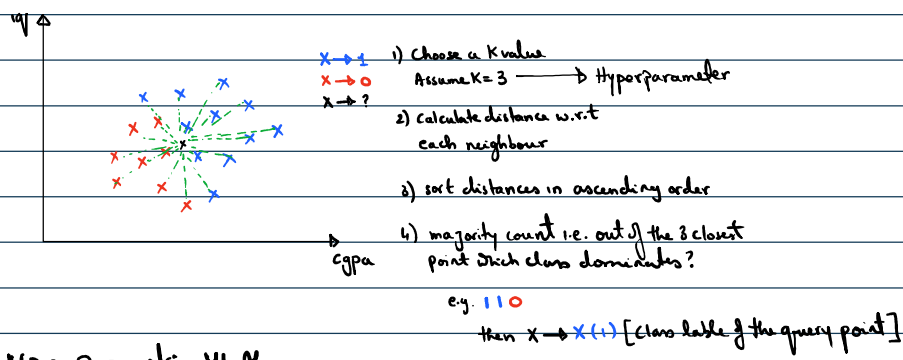 iq
X → 1
X → 0
X → ?
1) Choose a K value
Assume K = 3 → Hyperparameter
2) Calculate distance w.r.t
each neighbour
3) sort distances in ascending order
4) majority count i.e. out of the 3 closest
point which class dominates?
cgpa
e.g. 1 1 0
then X → X (1) [Class lable of the query point]